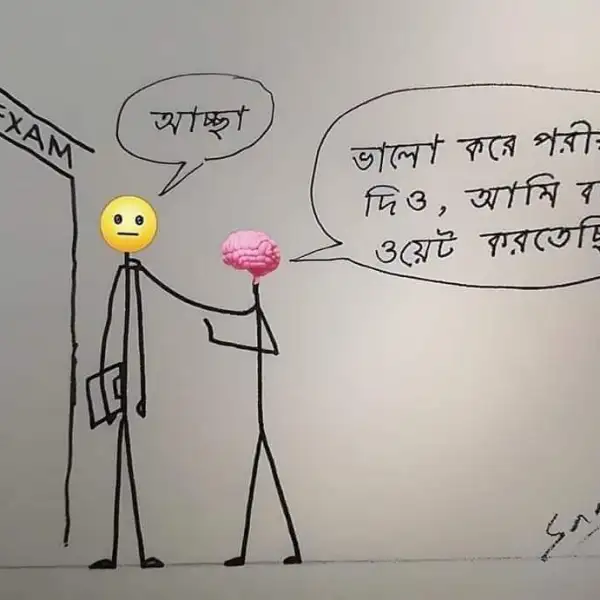 EXAM
আচ্ছা
ভালো করে
দিও, আমি
ওয়েট করতেছি